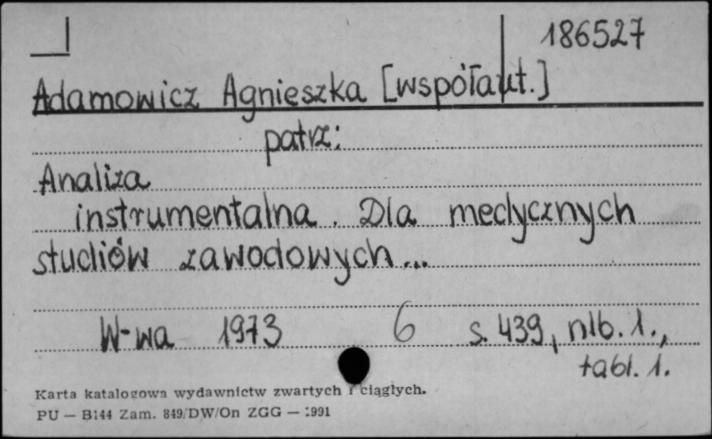 186527
Adamowicz Agnieszka [współaut.]
patrz:
Analiza
instrumentalna. Dla medycznych
studiów zawodowych...
W-wa 1973 6 s. 439, nlb. 1.,
tabl. 1.
Karta katalogowa wydawnictw zwartych i ciągłych.
PU — B144 Zam. 849/DW/On ZGG — 1991